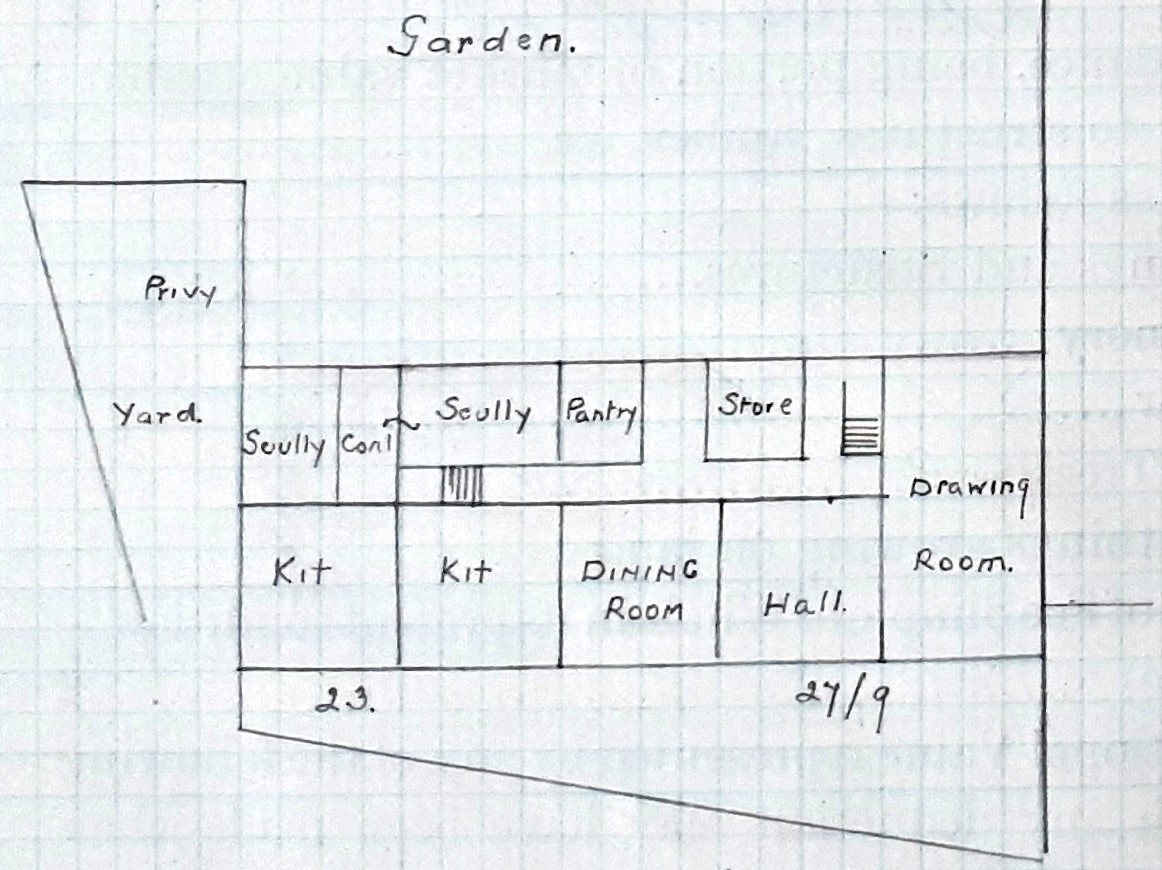 Garden.
Privy
Yard.
Scully
Coal
Scully
Pantry
Store
Drawing
Room.
Kit
Kit
DINING
ROOM
Hall.
23.
27/9